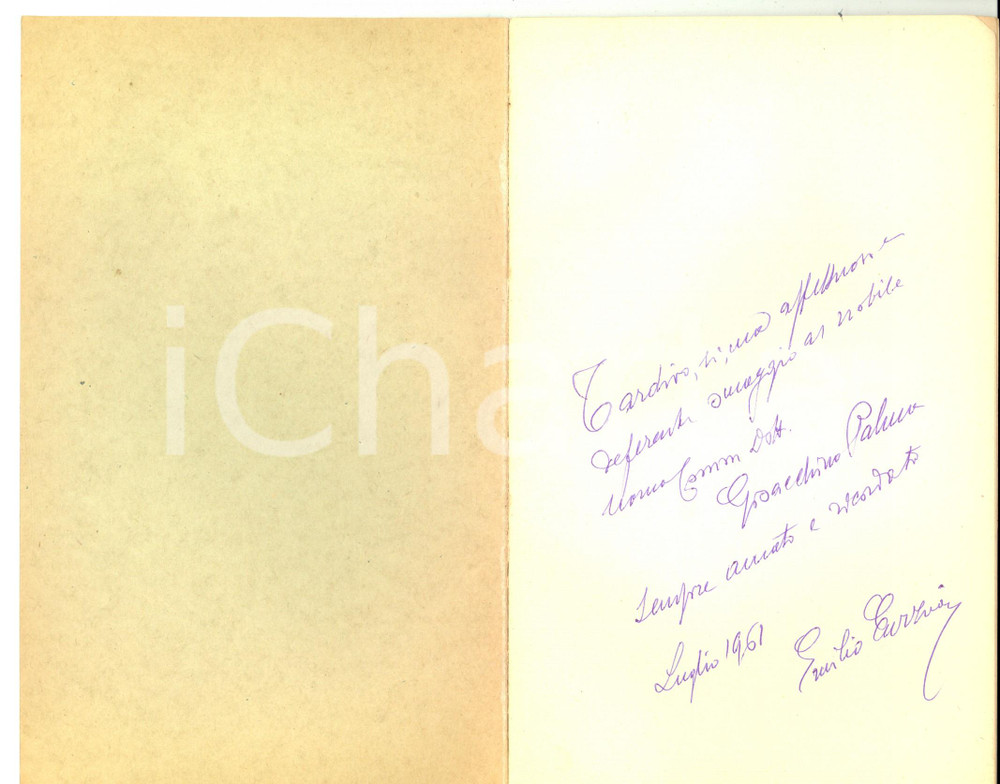 iCha
Tardivo, sì, ma affettuoso e
deferente omaggio al nobile
uomo Comm Dott.
Gioacchino Palma
sempre amato e ricordato
Luglio 1961
Emilio